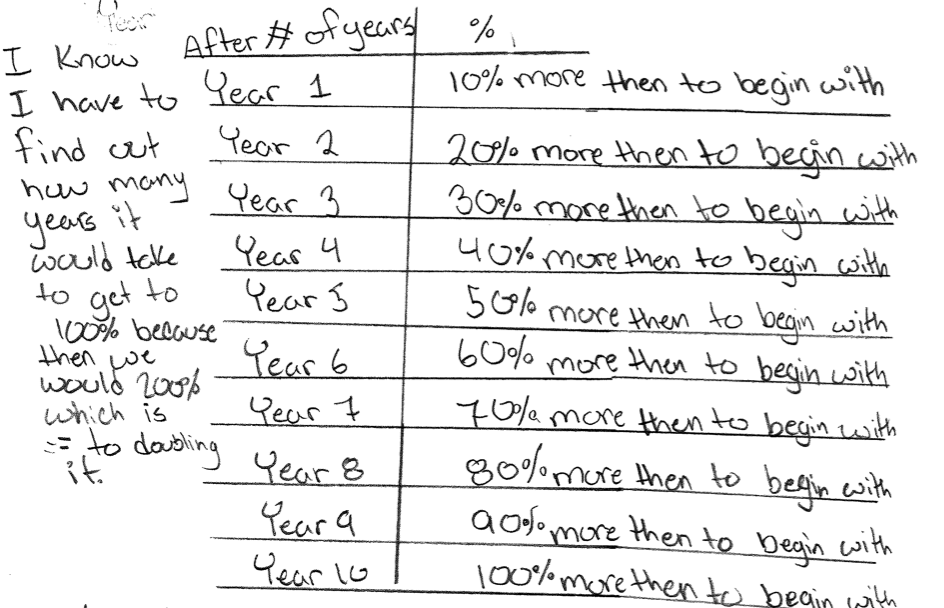 Year
I know
I have to
find out
how many
years it
would take
to get to
100% because
then we
would 200%
which is
= to doubling
it.
After # of years %
Year 1 10% more then to begin with
Year 2 20% more then to begin with
Year 3 30% more then to begin with
Year 4 40% more then to begin with
Year 5 50% more then to begin with
Year 6 60% more then to begin with
Year 7 70% more then to begin with
Year 8 80% more then to begin with
Year 9 90% more then to begin with
Year 10 100% more then to begin with